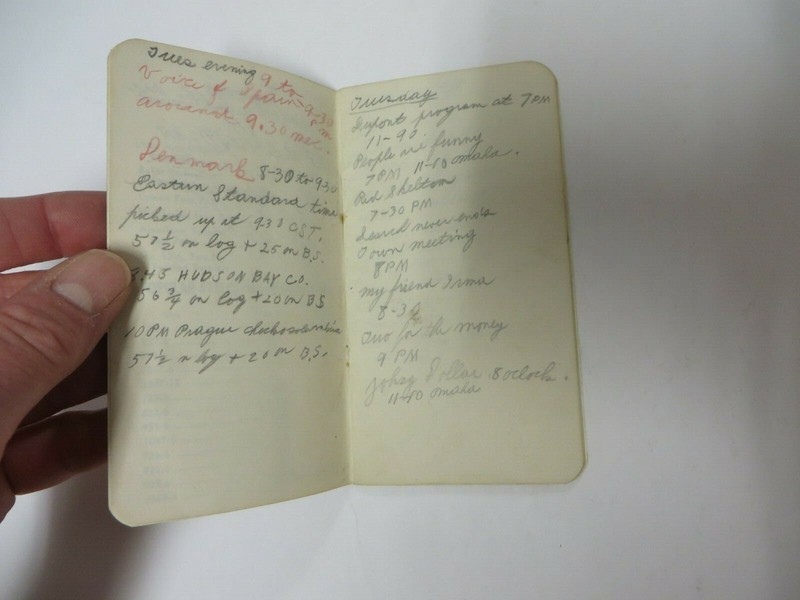 Tues evening 9 to 9-30 PM
Voice of Spain
around 9.30 mc.
Denmark 8-30 to 9-30
Eastern Standard time
picked up at 9.30 CST.
57 1/2 on log + 25 on B.S.
9.45 HUDSON BAY CO.
56 3/4 on log + 20 on BS
10 PM Prague
57 1/2 n log + 20 on B.S.
Tuesday
Dupont program at 7 PM
11-90.
People are funny
7 PM 11-10 omaha.
Red Skeltom
7-30 PM
Search never ends
Town meeting
8 PM
my friend Irma
8-30
Two for the money
9 PM
Johny Dollar 8 oclock.
11-10 omaha